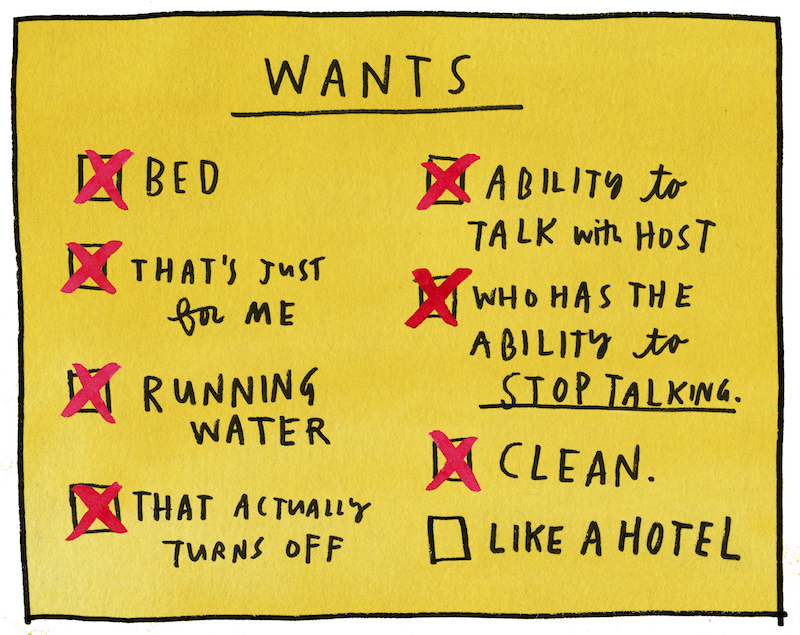 WANTS
BED
THAT'S JUST
for ME
RUNNING
WATER
THAT ACTUALLY
TURNS OFF
ABILITY to
TALK with HOST
WHO HAS THE
ABILITY to
STOP TALKING.
CLEAN.
LIKE A HOTEL